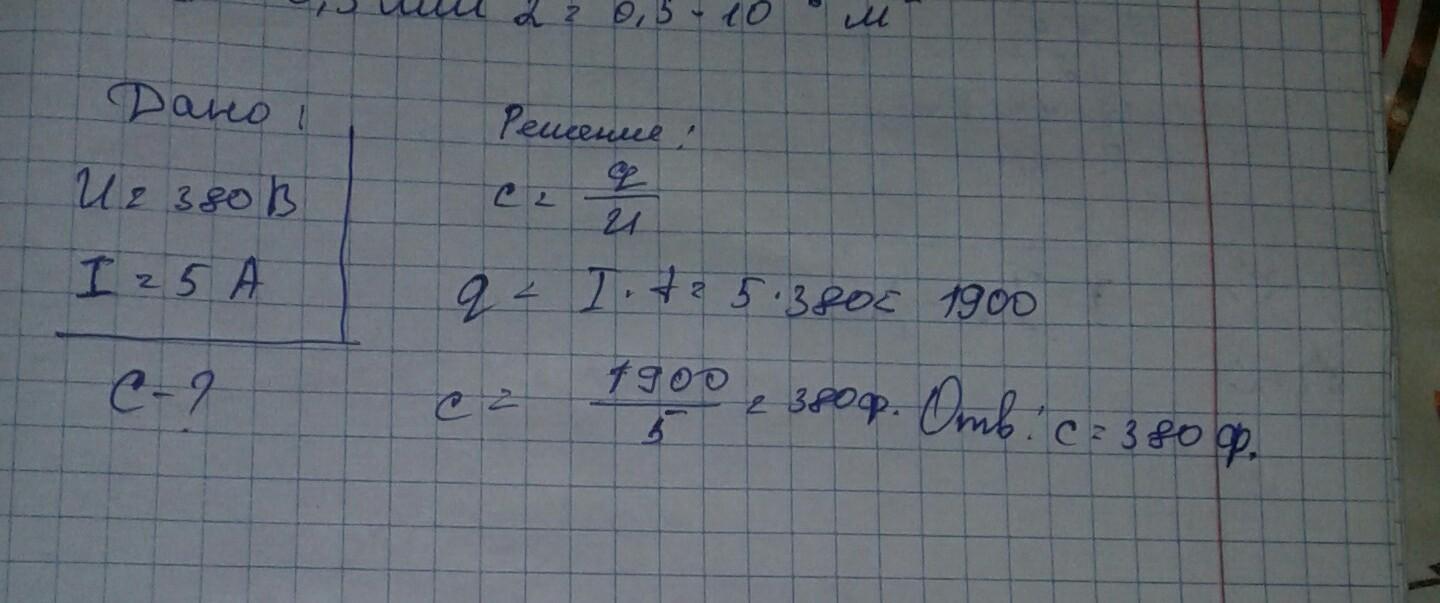 0,5 мм d = 0,5 - 10 м
Дано:
U = 380 В
I = 5 А
С - ?
Решение:
c = q/U
q = I · t = 5 · 380 = 1900
c = 1900/5 = 380 ф. Отв: c = 380 ф.